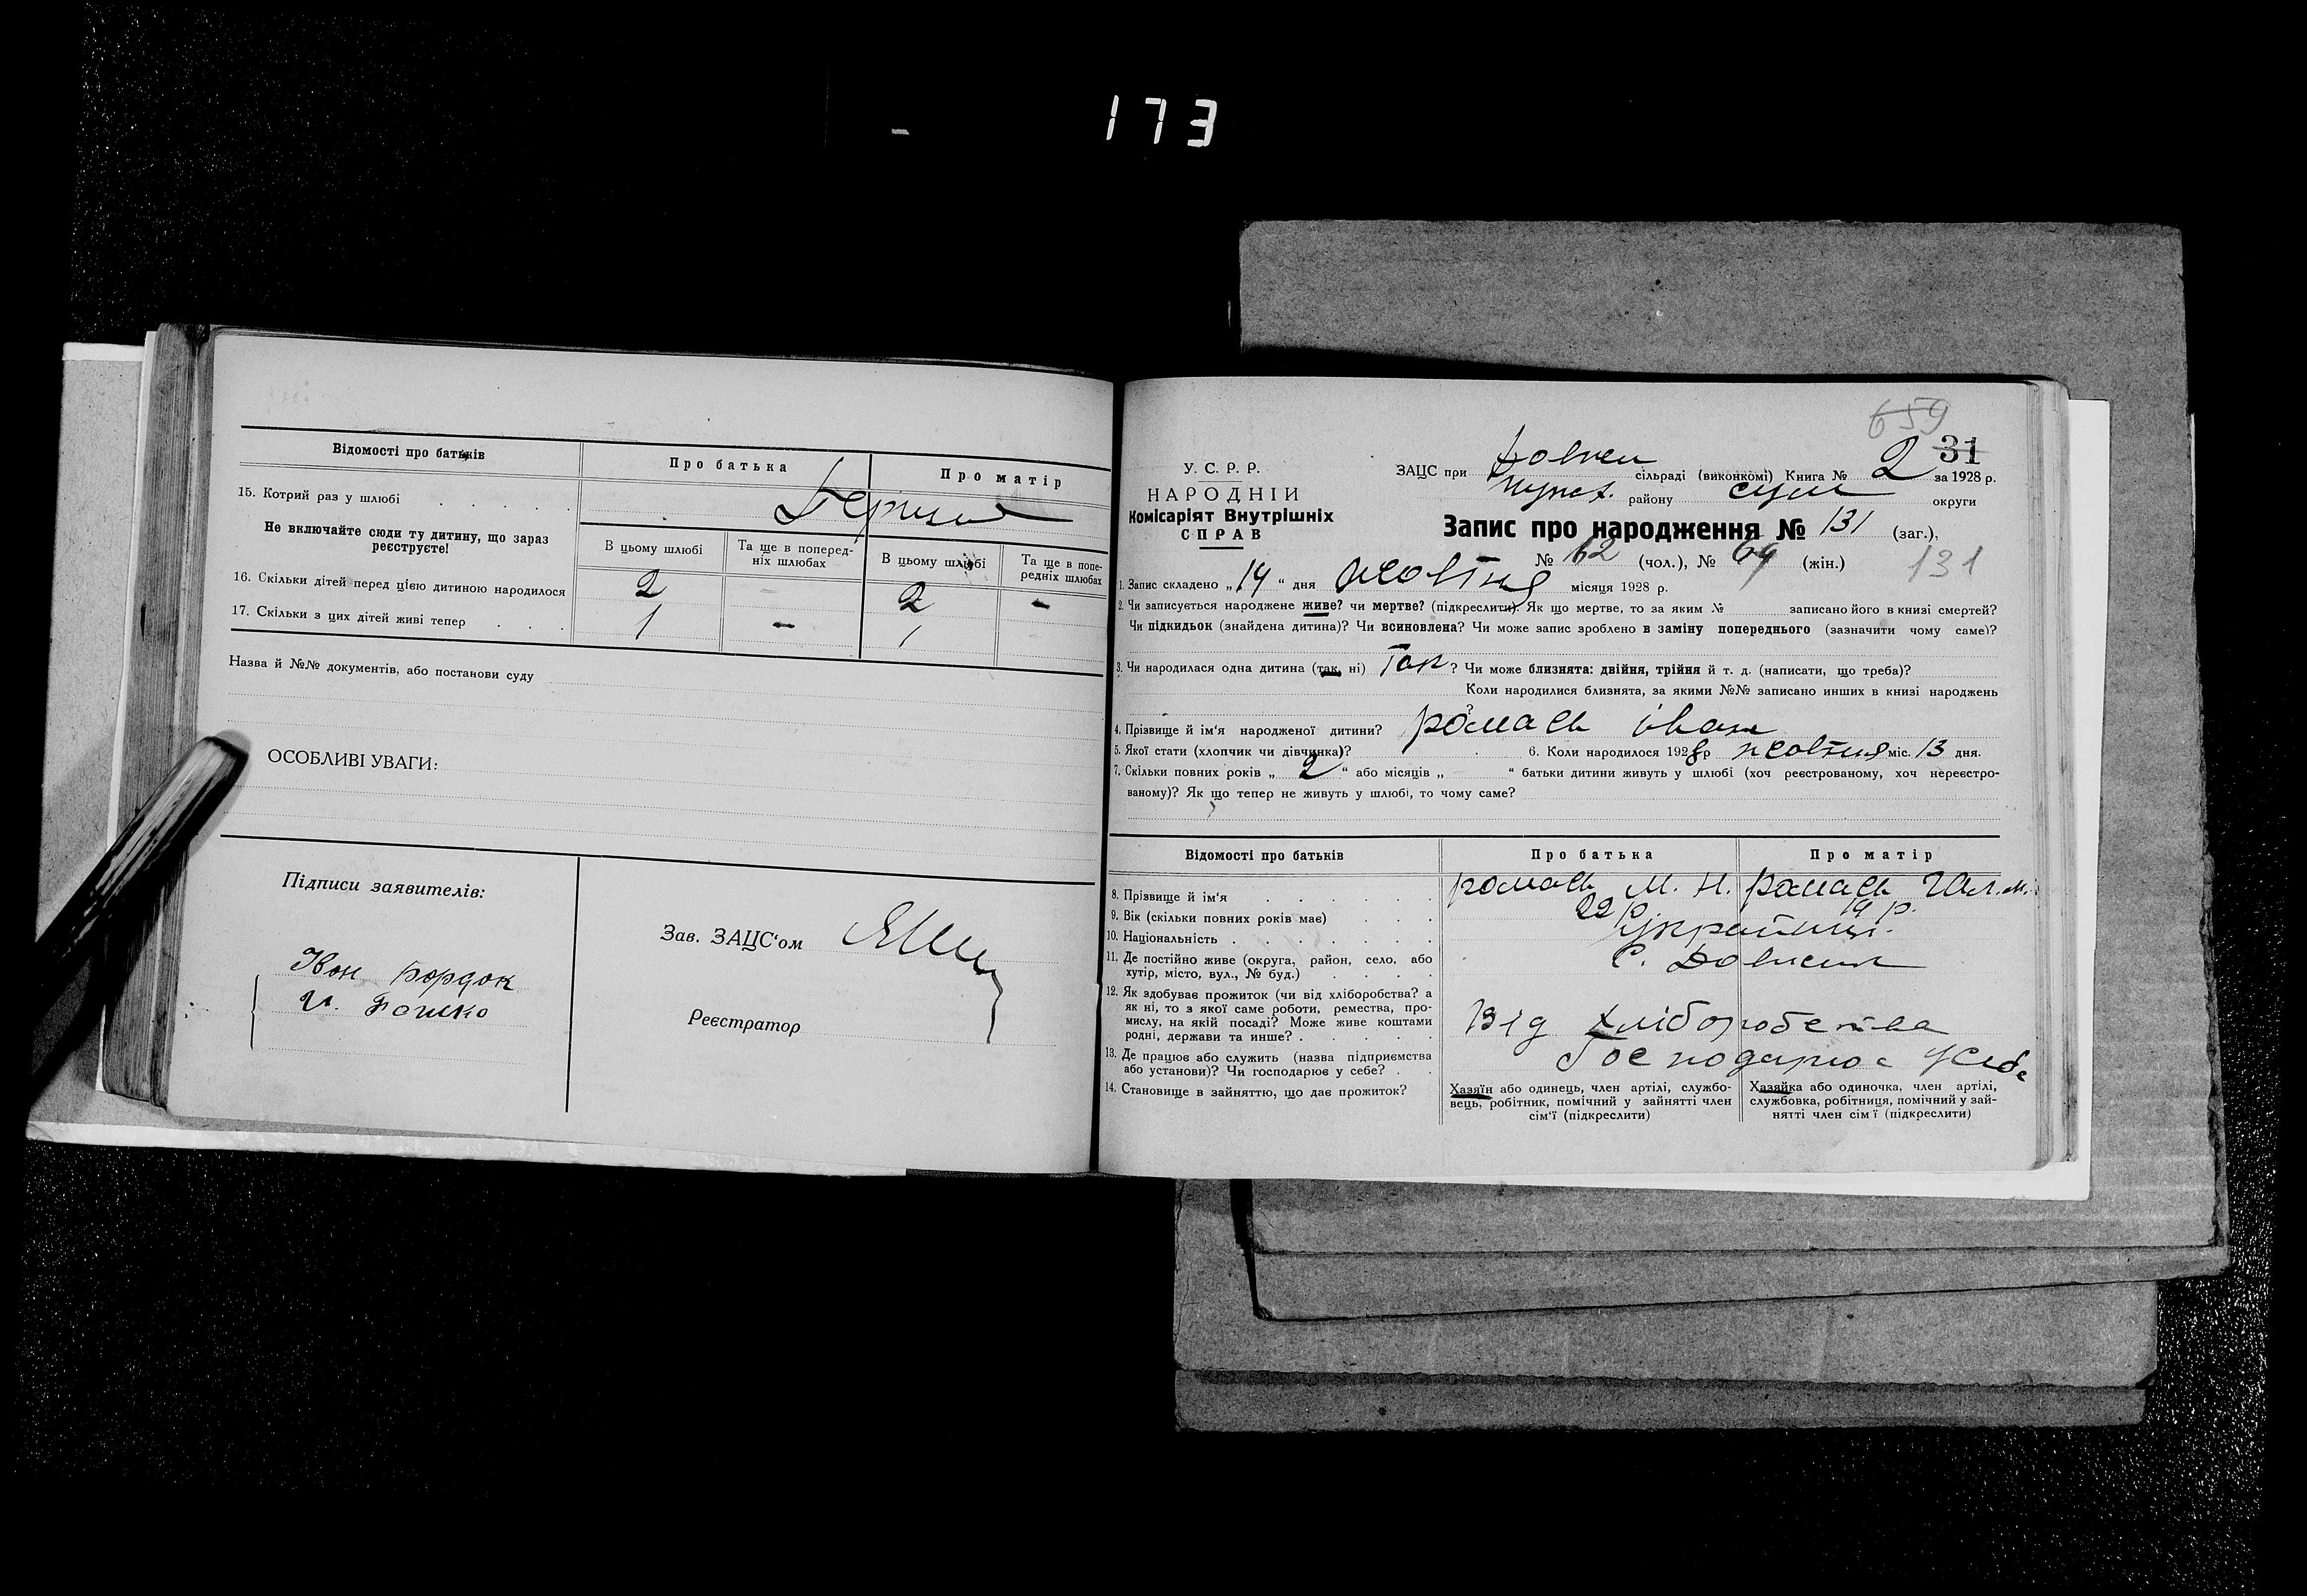 173
Відомості про батьків
Про батька
Про матір
15. Котрий раз у шлюбі
Не включайте сюди ту дитину, що зараз
реєструєте!
В цьому шлюбі
Та ще в поперед-
ніх шлюбах
В цьому шлюбі
Та ще в попе-
редніх шлюбах
16. Скільки дітей перед цією дитиною народилося 2 — 2 —
17. Скільки з цих дітей живі тепер 1 — 1
Назва й №№ документів, або постанови суду
ОСОБЛИВІ УВАГИ:
Підписи заявителів:
Зав. ЗАЦС'ом
Реєстратор
659
31
У. С. Р. Р.
НАРОДНІЙ
Комісаріят Внутрішніх
СПРАВ
ЗАЦС при сільраді (виконкомі) Книга № 2 за 1928 р.
району округи
Запис про народження № 131 (заг.),
№ 62 (чол.), № 69 (жін.)
131
1. Запис складено „14“ дня жовтня місяця 1928 р.
2. Чи записується народжене живе? чи мертве? (підкреслити). Як що мертве, то за яким № записано його в книзі смертей?
Чи підкидьок (знайдена дитина)? Чи всиновлена? Чи може запис зроблено в заміну попереднього (зазначити чому саме)?
3. Чи народилася одна дитина (так, ні) Так? Чи може близнята: двійня, трійня й т. д. (написати, що треба)?
Коли народилися близнята, за якими №№ записано инших в книзі народжень
4. Прізвище й ім'я народженої дитини? Іван
5. Якої стати (хлопчик чи дівчинка)? 6. Коли народилося 1928 р жовтня міс. 13 дня.
7. Скільки повних років „ 2 “ або місяців „ “ батьки дитини живуть у шлюбі (хоч реєстрованому, хоч нереєстро-
ваному)? Як що тепер не живуть у шлюбі, то чому саме?
Відомості про батьків
Про батька
Про матір
8. Прізвище й ім'я
9. Вік (скільки повних років має) 22 р. 19 р.
10. Національність Українці.
11. Де постійно живе (округа, район, село, або
хутір, місто, вул., № буд.)
12. Як здобуває прожиток (чи від хліборобства? а
як ні, то з якої саме роботи, ремества, про-
мислу, на якій посаді? Може живе коштами
родні, держави та инше?
Від хліборобства
13. Де працює або служить (назва підприємства
або установи)? Чи господарює у себе?
Господарює у себе
14. Становище в зайняттю, що дає прожиток?
Хазяїн або одинець, член артілі, службо-
вець, робітник, помічний у зайнятті член
сім'ї (підкреслити)
Хазяйка або одиночка, член артілі,
службовка, робітниця, помічний у зай-
нятті член сім'ї (підкреслити)